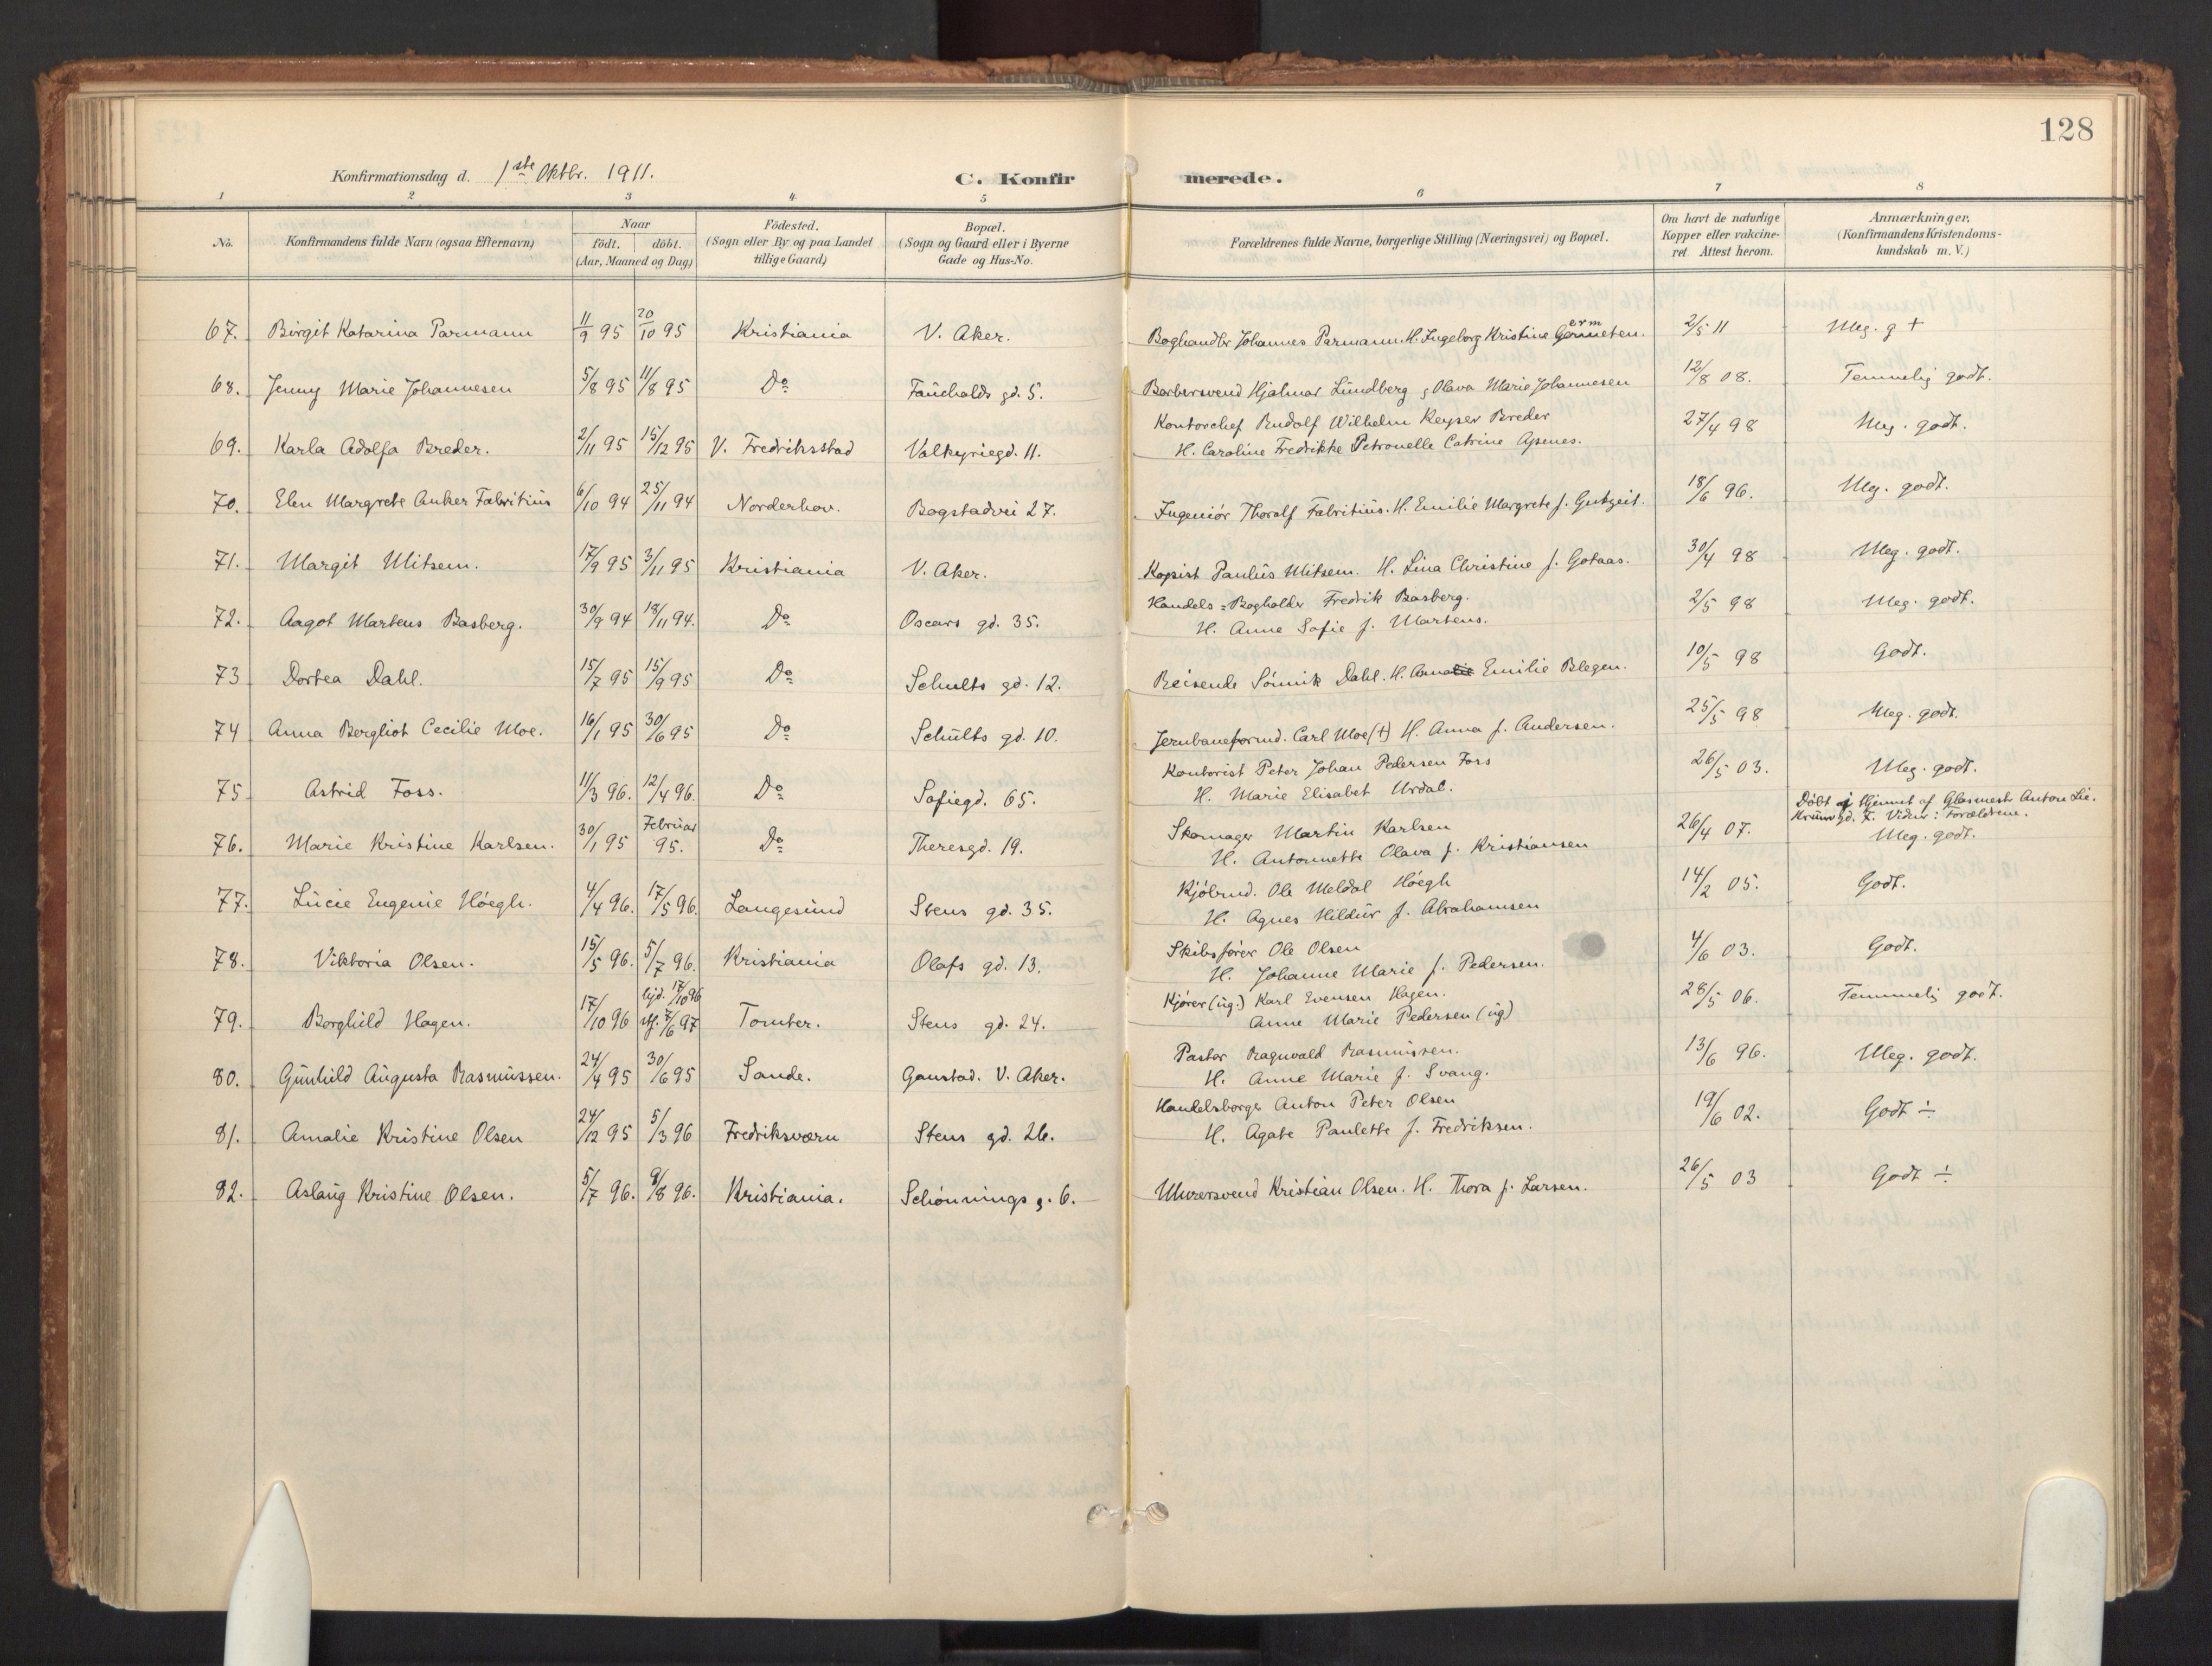 128
Konfirmationsdag d. 1ste Oktbr. 1911.
C. Konfirmerede.
1 2 3 4 5 6 7 8
No. Konfirmandens fulde Navn (ogsaa Efternavn) Naar födt. döbt. (Aar, Maaned og Dag) Födested. (Sogn eller By og paa Landet tillige Gaard) Bopæl. (Sogn og Gaard eller i Byerne Gade og Hus-No. Forældrenes fulde Navne, borgerlige Stilling (Næringsvei) og Bopæl. Om havt de naturlige Kopper eller vakcineret. Attest herom. Anmærkninger. (Konfirmandens Kristendomskundskab m. V.)
67. Birgit Katarina Parmann 11/9 95 20/10 95 Kristiania V. Aker. Boghandler Johannes Parmann. H. Ingeborg Kristine 2/5 11 Meg. g +
68. Jenny Marie Johannesen 5/8 95 11/8 95 Do Fauchalds gd. 5. Barbersvend Hjalmar Lundberg, Olava Marie Johannesen 12/8 08. Temmelig godt.
69. Karla Adolfa Breder. 2/11 95 15/12 95 V. Fredriksstad Valkyriegd. 11. Kontorchef Rudolf Wilhelm Keyser Breder 27/4 98 Meg. godt.
H. Caroline Fredrikke Petronelle Catrine Apenes.
70. Elen Margrete Anker Fabritius 6/10 94 25/11 94 Norderhov. Bogstadvei 27. Ingeniør Thoralf Fabritius. H. Emilie Margrete f. Gutzeit. 18/6 96. Meg. godt.
71. Margit Mitsem. 17/9 95 3/11 95 Kristiania V. Aker. Kopist Paulus Mitsem. H. Lina Christine f. Gotaas. 30/4 98 Meg. godt.
72. Aagot Martens Basberg. 30/9 94 18/11 94. Do Oscars gd. 35. Handels-Bogholder Fredrik Basberg. 2/5 98 Meg. godt.
H. Anne Sofie f. Martens.
73 Dortea Dahl. 15/7 95 15/9 95 Do Schults gd. 12. Reisende Sønnik Dahl. H. Emilie Blegen. 10/5 98 Godt.
74 Anna Bergliot Cecilie Moe. 16/1 95 30/6 95 Do Schults gd. 10. Jernbaneformd. Carl Moe (†) H. Anna f. Andersen. 25/5 98 Meg. godt.
75 Astrid Foss. 11/3 96. 12/4 96. Do Sofiegd. 65. Kontorist Peter Johan Pedersen Foss 26/5 03. Meg. godt.
H. Marie Elisabet Urdal.
76. Marie Kristine Karlsen. 30/1 95 Februar 95. Do Theresgd. 19. Skomager Martin Karlsen 26/4 07. Döbt i Hjemmet af Glasmestr Anton Lie.
H. Antonette Olava f. Kristiansen gd. 7. Vidner: Forældrene.
Meg. godt.
77. Lucie Eugenie Høegh. 4/4 96. 17/5 96. Langesund Stens gd. 35. Kjøbmd. Ole Meldal Høegh 14/2 05. Godt.
H. Agnes Hildur f. Abrahamsen
78. Viktoria Olsen. 15/5 96. 5/7 96. Kristiania Olafs gd. 13. Skibsfører Ole Olsen 4/6 03. Godt.
H. Johanne Marie f. Pedersen.
79. Borghild Hagen. 17/10 96 hjd. 17/10 96 stf. 7/6 97 Tomter. Stens gd. 24. Kjører (ug.) Karl Evensen Hagen. 28/5 06. Temmelig godt.
Anne Marie Pedersen (ug)
80. Gunhild Augusta Rasmussen. 24/4 95 30/6 95 Sande. Gaustad. V. Aker. Pastor Ragnvald Rasmussen. 13/6 96. Meg. godt.
H. Anne Marie f. Svang.
81. Amalie Kristine Olsen 24/12 95 5/3 96 Fredriksværn Stens gd. 26. Handelsborger Anton Peter Olsen 19/6 02. Godt ÷
H. Agate Paulette f. Fredriksen.
82. Aslaug Kristine Olsen. 5/7 96. 9/8 96. Kristiania. Schønnings g. 6. Murersvend Kristian Olsen. H. Thora f. Larsen. 26/5 03 Godt ÷